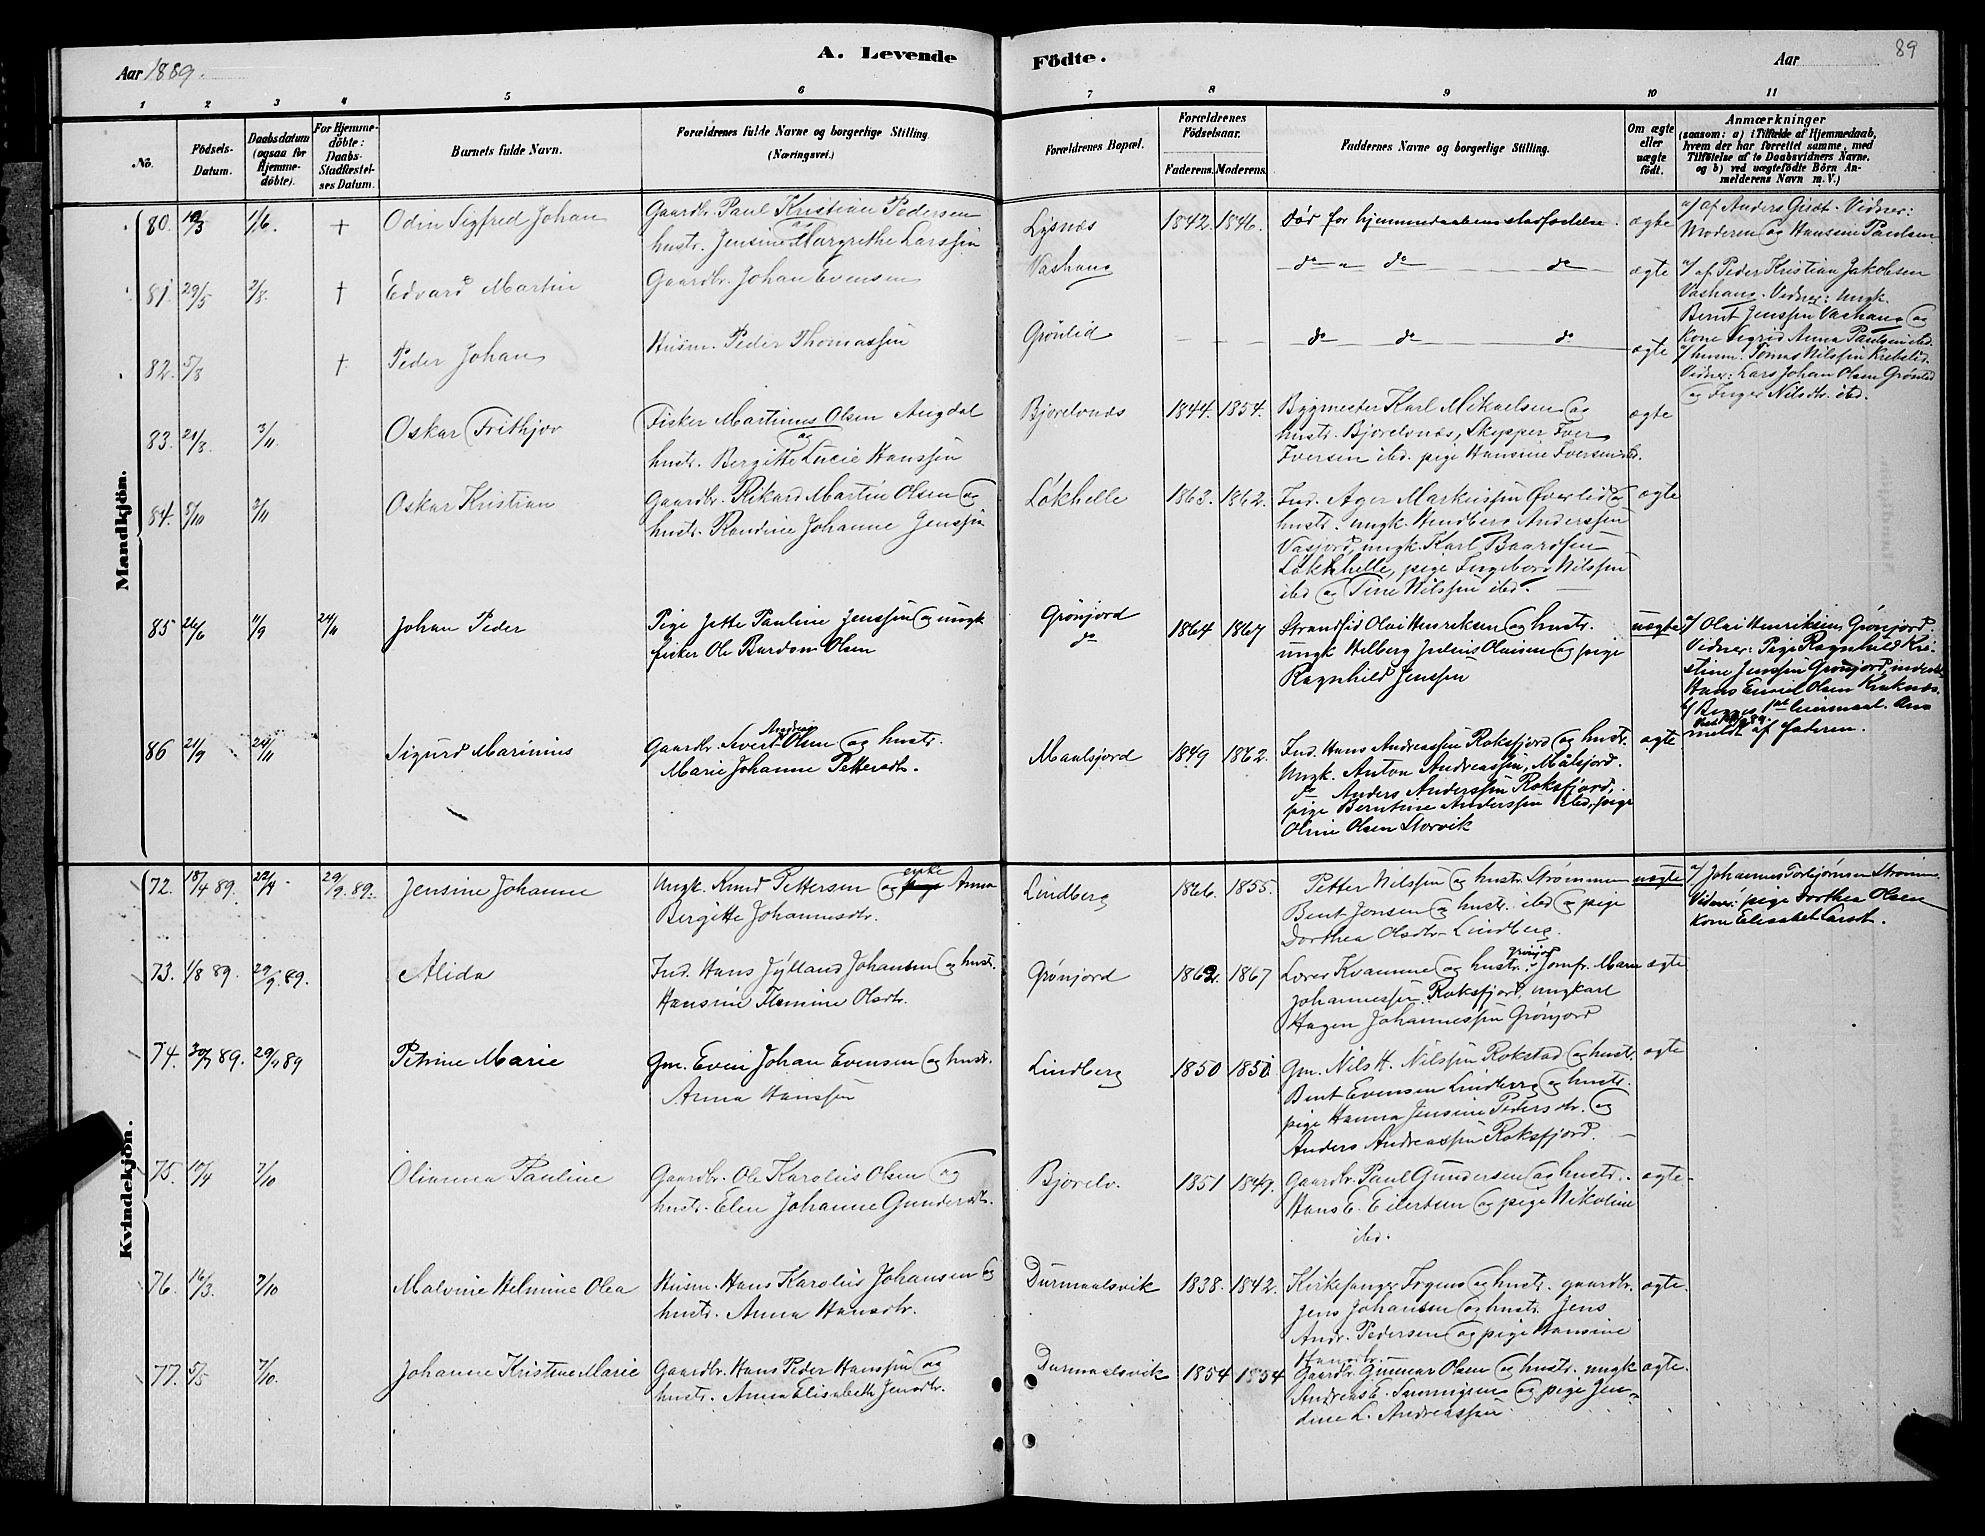 89
Aar 1889.
A. Levende
Födte.
Aar
1 2 3 4 5 6 7 8 9 10 11
No.
Födsels-Datum.
Daabsdatum (ogsaa for Hjemme-döbte).
For Hjemme-döbte: Daabs-Stadfæstel-ses Datum.
Barnets fulde Navn.
Forældrenes fulde Navne og borgerlige Stilling (Næringsvei.)
Forældrenes Bopæl.
Forældrenes Födselsaar.
Faderens. Moderens.
Faddernes Navne og borgerlige Stilling.
Om ægte eller uægte födt.
Anmærkninger
(saasom: a) i Tilfælde af Hjemmedaab,
hvem der har forrettet samme, med
Tilföielse af to Daabsvidners Navne.
og b) ved uægtefödte Börn An-
melderens Navn m. V.)
Mandkjön.
80. 19/3 1/6. + Odin Sigfred Johan
Gaardbr. Paul Kristian Pedersen
og
hustr. Jensine Margrethe Larssen
Lysnæs 1842. 1846. Död før hjemmedaabens stadfæstelse. ægte
a/ af Anders Giæt. Vidner:
Moderen og Hansine Paulsen
81. 29/5 2/8. + Edvard Martin
Gaardbr. Johan Evensen
Vashaug
do do do ægte
a/ af Peder Kristian Jakobsen
Vashaug. Vidner: Ungk.
Bernt Jenssen Vashaug og
Kone Sigrid Anna Paulsen ibd.
82. 5/8 + Peder Johan
Husm. Peder Thomassen
Grønlid
do do do ægte
a/ husm. Tomas Nilssen Krebslid.
Vidner: Lars Johan Olsen Grønlid
og Inger Nilsdtr. ibd.
83. 21/8. 3/11. Oskar Frithjov
Fisker Martinus Olsen Angdal
og
hustr. Bergitte Lucie Hanssen
Bjorelvnæs 1844. 1854.
Bygmester Karl Mikaelsen og
hustr. Bjorelvnæs, Skipper Iver
Iversen ibd. pige Hansine Iversen ibd.
ægte
84. 5/10 3/11 Oskar Kristian
Gaardbr. Rikard Martin Olsen og
hustr. Randine Johanne Jenssen
Løkhelle 1863. 1862.
Ind. Ager Markussen Øverlid og
hustr. ungk. Hindberg Anderssen
Vasjord, ungk. Karl Baardsen
Løkhelle, pige Ingeborg Nilssen
ibd og Tine Nilssen ibd.
ægte
85 26/6 1/9 24/11 Johan Peder
Pige Jette Pauline Jenssen og ungk
fisker Ole Burdon Olsen
Grønjord
do
1864 1867
Strandsid Olai Henriksen og hustr.
ungk Helberg Julius Olaisen og pige
Ragnhild Jenssen
uægte
a/ Olai Henriksen, Grønjord.
Vidner: Pige Ragnhild Kri-
stine Jenssen Grønjord, inderst
Hans Enviel Olsen Kraknæs.
b/ Begges 1ste Leiermaal. An-
meldt af faderen.
86 21/9 24/11 Sigurd Marinius
Gaardbr. Sivert Andreas Olsen og hustr.
Marie Johanne Pettersdtr.
Maalsjord 1849 1862.
Ind. Hans Andreassen Roksfjord og hustr.
Ungk. Anton Andreassen, Målsjord.
do Anders Anderssen Roksfjord,
pige Berntine Anderssen ibd, pige
Oline Olsen Storvik
ægte
Kvindekjön.
72. 18/4 89. 22/4 29/9. 89. Jensine Johanne
Ungk. Knud Pettersen og enke Anna
Bergitte Johannesdtr.
Lindberg 1866. 1855.
Petter Nilssen og hustr. Strømmen
Bent Jensen og hustr. ibd og pige
Dorthea Olsdtr. Lindberg.
uægte
a/ Johannes Torbjørnsen Strømm.
Vidner: pige Dorthea Olsen
Kone Elisabet Larsdt.
73. 1/8 89. 29/9. 89. Alida
Ind. Hans Jylland Johansen og hustr.
Hansine Flemine Olsdtr.
Grønjord 1862. 1867
Lærer Kvamme og hustr. Grønjord Jomfr. Marie
Johannessen Roksfjord, ungkarl
Hagen Johannessen Grønjord
ægte
74. 30/7 89. 29/9 89 Petrine Marie
Gm. Even Johan Evensen og hustr.
Anna Hanssen
Lindberg 1850 1850
Gm. Nils H. Nilssen Rokstad og hustr.
Bent Evensen Lindberg og hustr.
pige Hanna Jensine Pedersdtr. og
Anders Andreassen Roksfjord.
ægte
75. 10/4 7/10 Olianna Pauline
Gaardbr. Ole Karolius Olsen og
hustr. Elen Johanne Gundersdtr.
Bjorelv. 1851 1849.
Gaardbr. Paul Gundersen og hustr.
Hans E. Eilertsen og pige Nikoline
ibd.
ægte.
76. 16/3. 7/10 Malvine Helmine Olea
Husm. Hans Karolius Johansen og
hustr. Anna Hansdtr.
Durmaalsvik 1838. 1842.
Kirkesanger Irgens og hustr. gaardbr.
Jens Johansen og hustr Jens
Andr. Pedersen og pige Hansine
Hansdtr.
ægte.
77. 5/5 7/10. Johanne Kristine Marie
Gaardbr. Hans Peder Hanssen og
hustr. Anna Elisabeth Jensdtr.
Durmaalsvik 1854 1854
Gaardbr. Gunnar Olsen og hustr. ungk
Andreas E. Simonsen og pige Jen-
dine L. Andreassen
ægte.